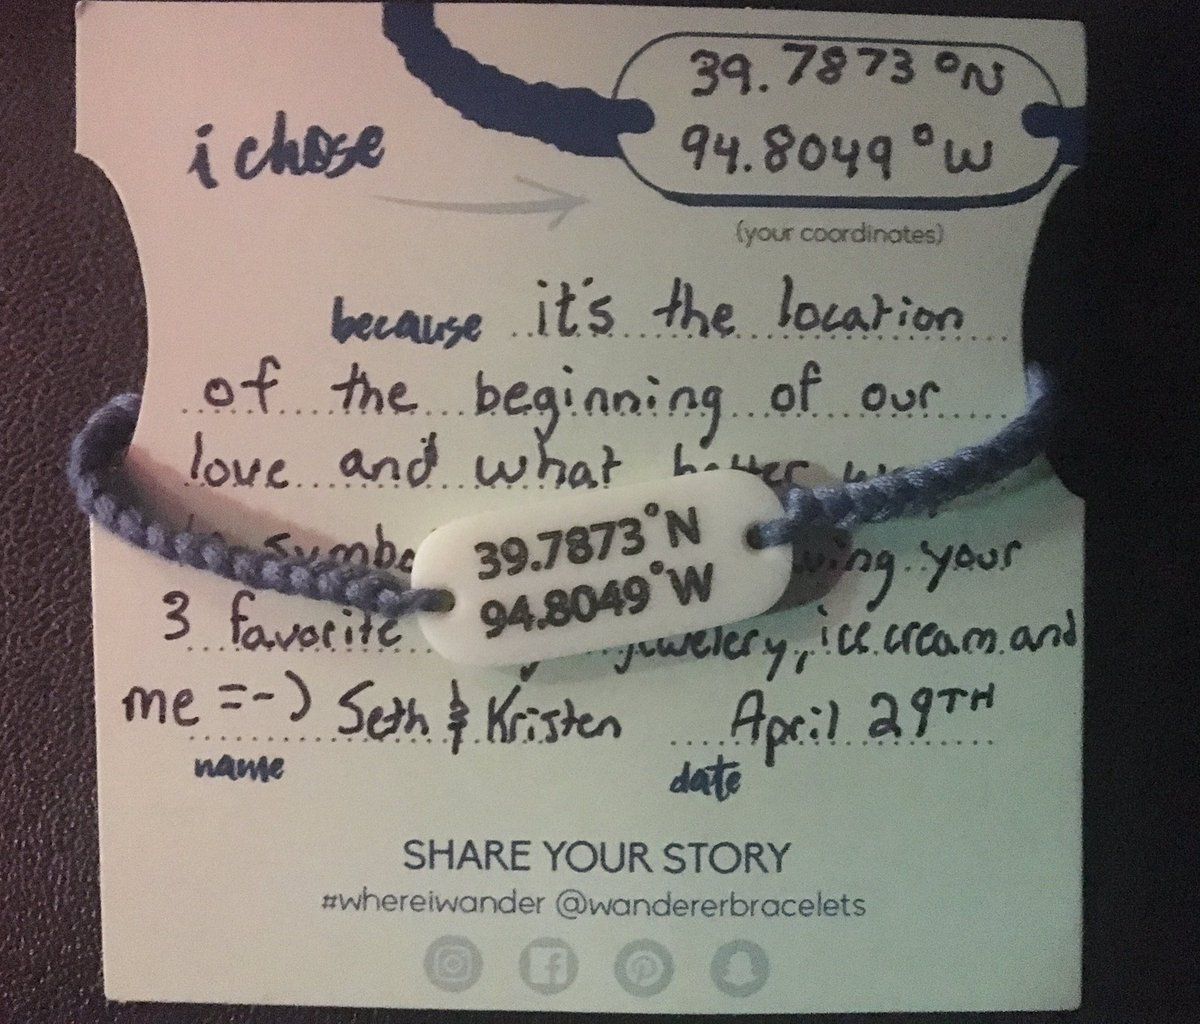 39.7873 °N
i chose 94.8049 °W
(your coordinates)
because it's the location
of the beginning of our
love and what better
your
39.7873°N
94.8049°W
3 favorite jewelery, ice cream and
me =-) Seth & Kristen April 29TH
name date
SHARE YOUR STORY
#whereiwander @wandererbracelets